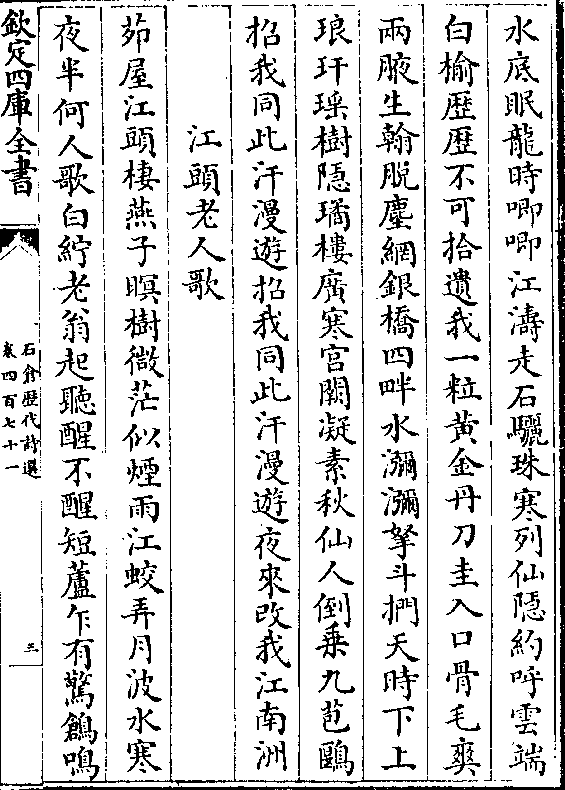 水底眠龍時唧唧江濤走石驪珠寒列仙隱約呼雲端
白榆歷歷不可拾遺我一粒黃金丹刀圭入口骨毛爽
兩腋生翰脫塵網銀橋四畔水瀰瀰拏斗捫天時下上
琅玕琪樹隱璚樓廣寒宮闕凝素秋仙人倒乗九苞鷗
招我同此汗漫遊招我同此汗漫遊夜來改我江南洲
江頭老人歌
茆屋江頭棲燕子暝樹微茫似煙雨江蛟弄月波水寒
夜半何人歌白紵老翁起聽醒不醒短蘆乍有驚鶬鳴
欽定四庫全書
石倉歷代詩選
卷四百七十一
三